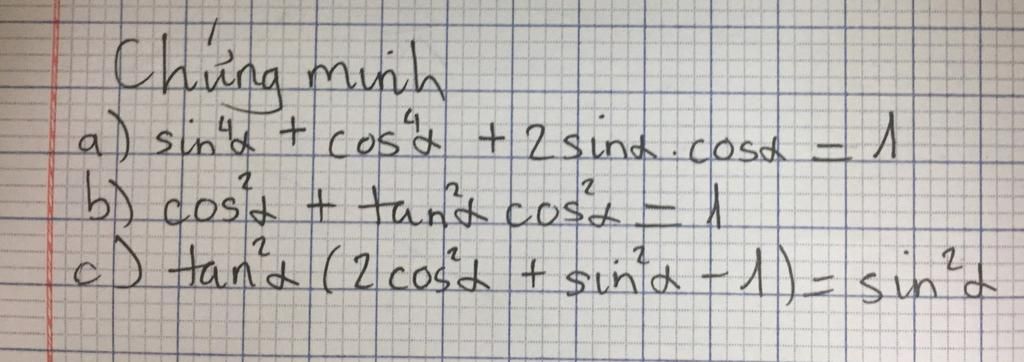 Chứng minh
a) sin⁴α + cos⁴α + 2sinα.cosα = 1
b) cos²α + tan²α cos²α = 1
c) tan²α (2cos²α + sin²α - 1) = sin²α